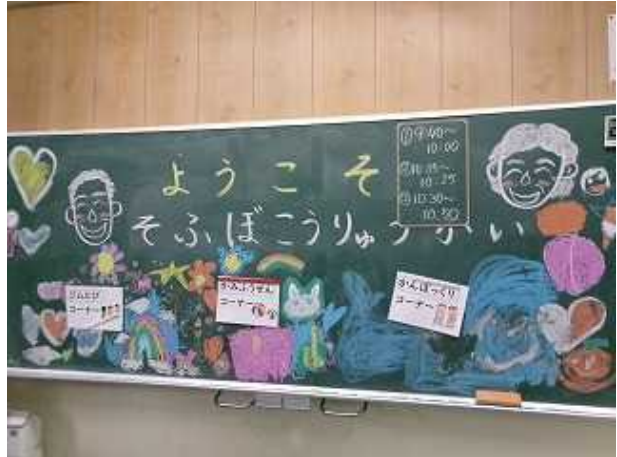 ようこそ
そふぼこうりゅうかい
①9:40〜
10:00
②10:05〜
10:25
③10:30〜
10:50
ゴムとび
コーナー
かみふうせん
コーナー
かんぽっくり
コーナー